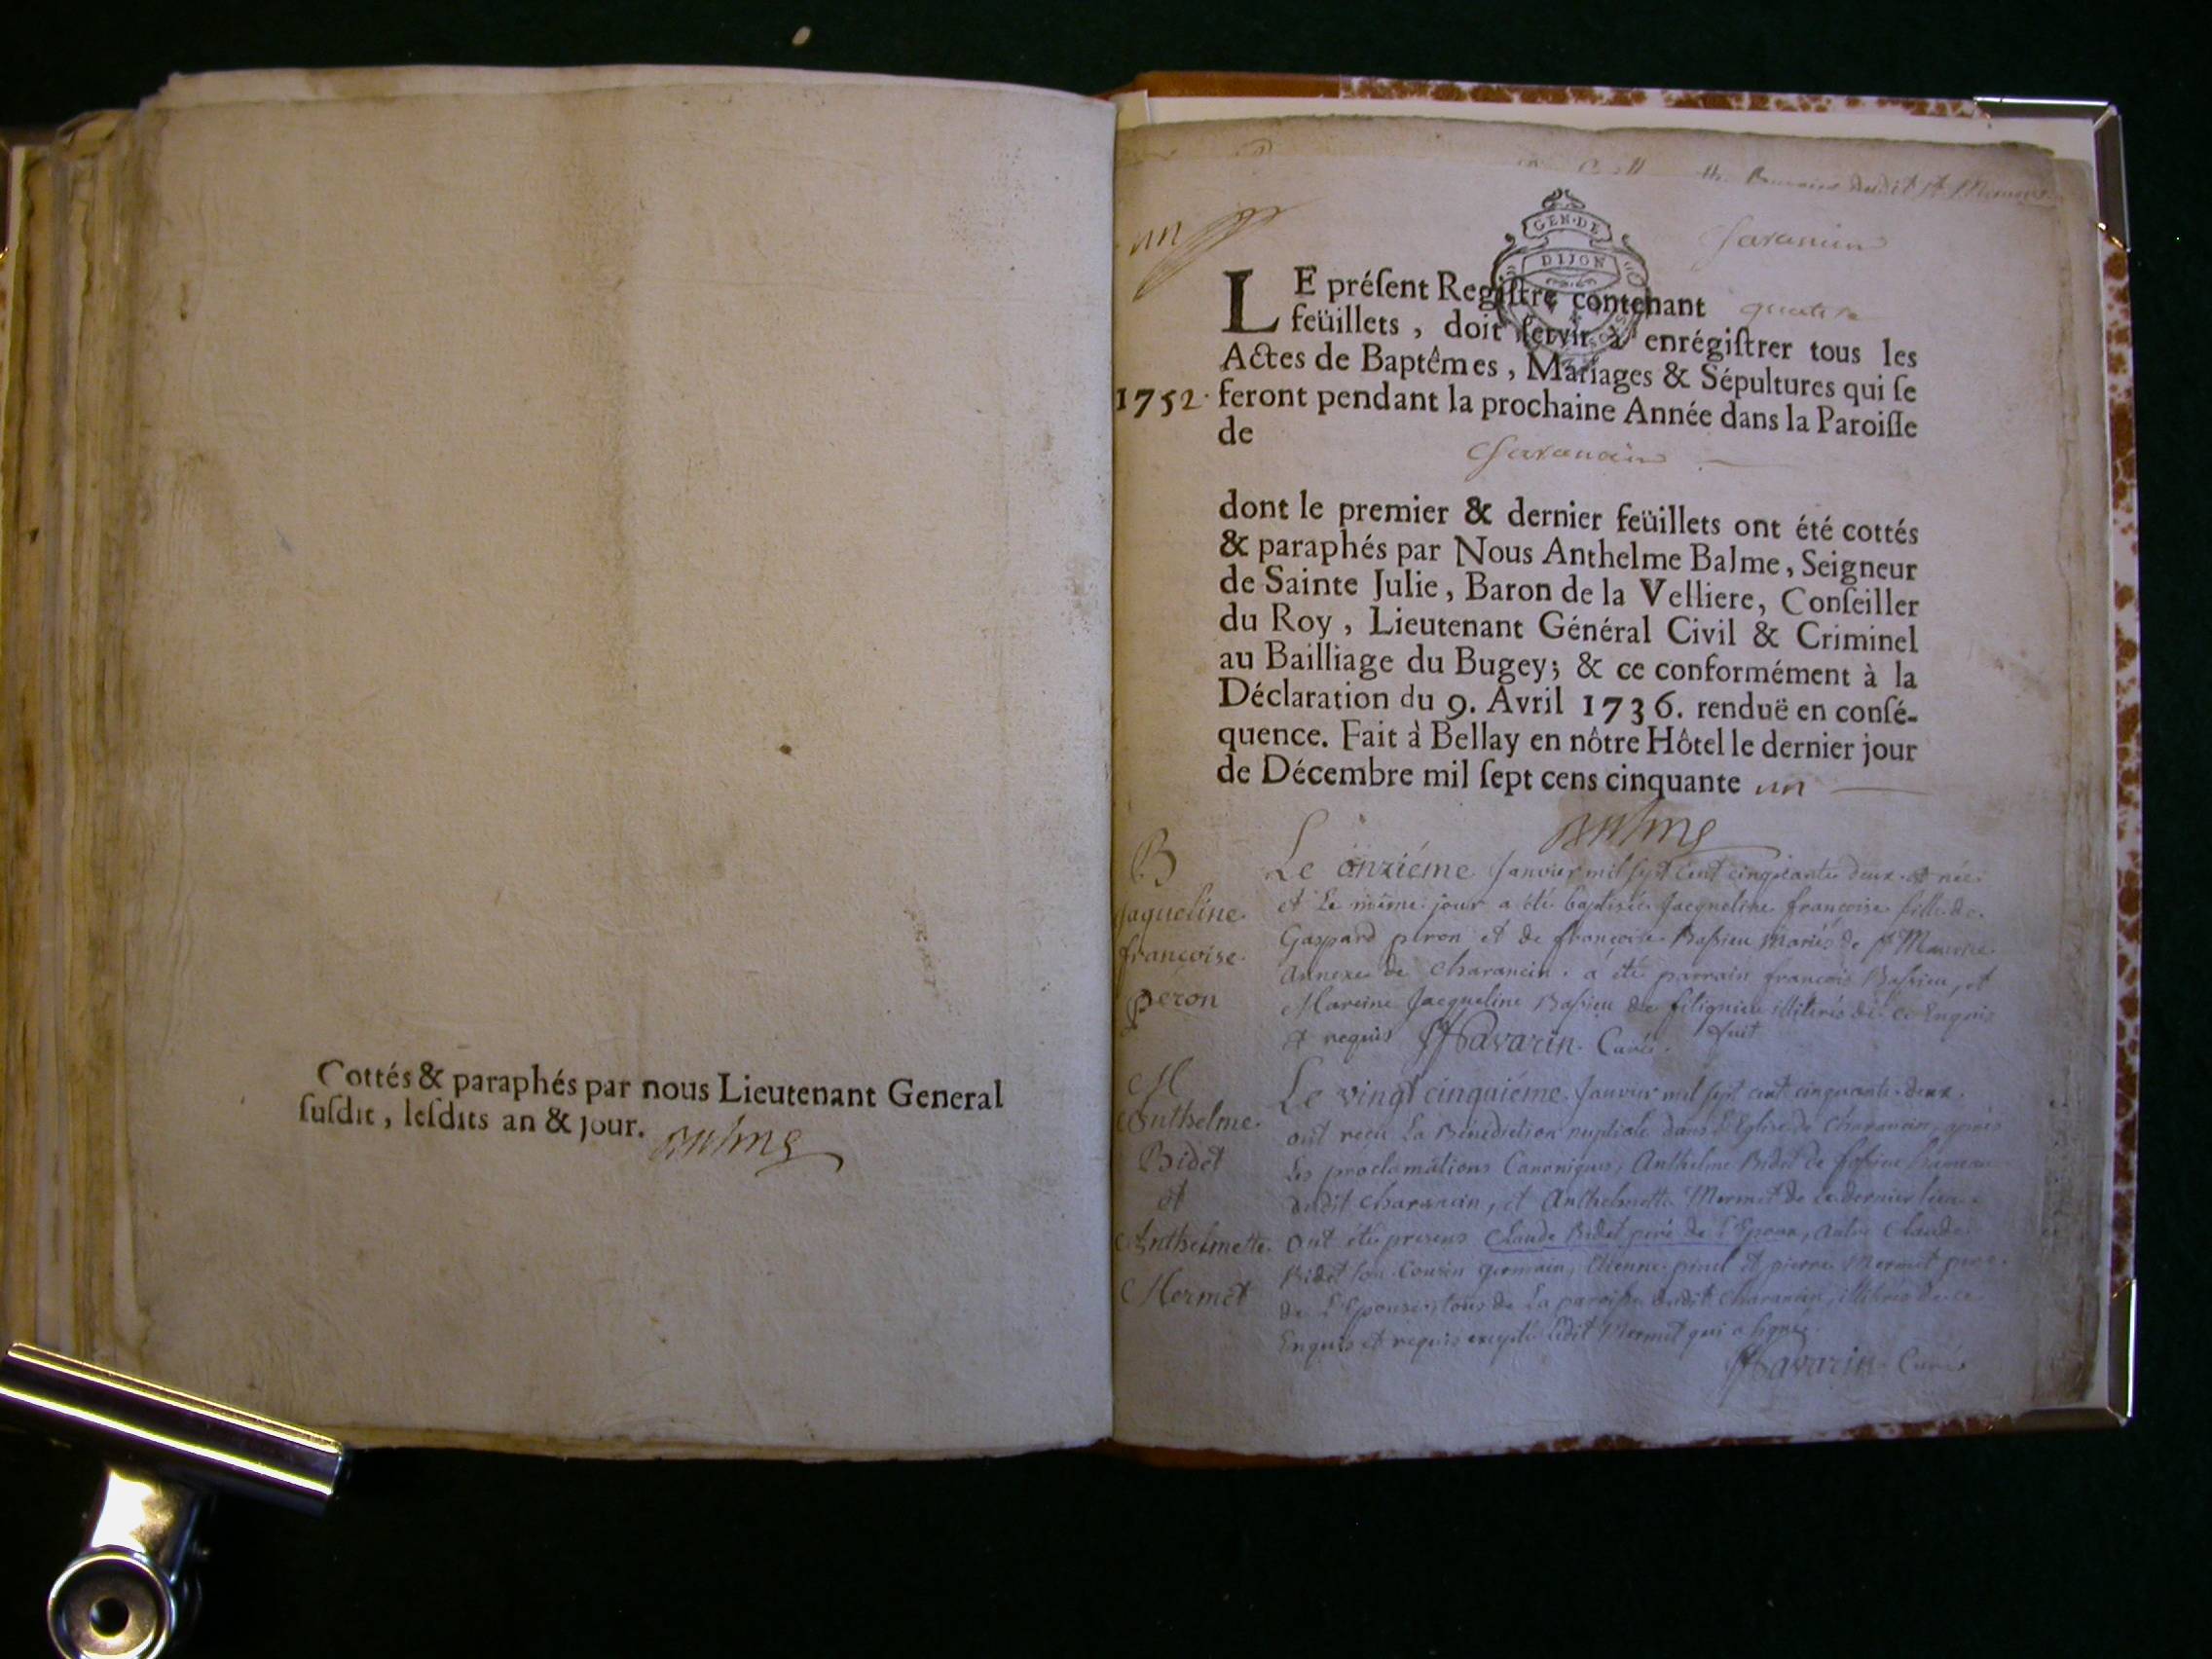 Cottés & paraphés par nous Lieutenant General
ſuſdit, leſdits an & jour.
Balme
Bannoire dudit St Maurice
un
Charancin
GEN·DE
DIJON
LE préſent Regiſtre contenant quatre
feüillets, doit ſervir à enrégiſtrer tous les
Actes de Baptêmes, Mariages & Sépultures qui ſe
1752. feront pendant la prochaine Année dans la Paroiſſe
de
Charancin
dont le premier & dernier feüillets ont été cottés
& paraphés par Nous Anthelme Balme, Seigneur
de Sainte Julie, Baron de la Velliere, Conſeiller
du Roy, Lieutenant Général Civil & Criminel
au Bailliage du Bugey; & ce conformément à la
Déclaration du 9. Avril 1736. renduë en conſé-
quence. Fait à Bellay en nôtre Hôtel le dernier jour
de Décembre mil ſept cens cinquante un
Balme
B
Jaqueline
françoise
peron
Le onziéme Janvier mil sept cent cinquante deux est née
et le même jour a été baptisée Jacqueline françoise fille de
Gaspard peron et de françoise Bassieu mariés de St Maurice
Annexe de Charancin. a été parrain françois Bassieu, et
Mareine Jacqueline Bassieu de fitignieu illiterés de ce Enquis
et requis Havarin Curé
M
Anthelme
Bidet
et
Anthelmette
Mermet
Le vingt cinquiéme Janvier mil sept cent cinquante deux
ont reçu la Benediction nuptiale dans l'Eglise de Charancin, après
les proclamations Canoniques, Anthelme Bidet de hameau
dudit Charancin, et Anthelmette Mermet de ce dernier lieu
ont été presens Claude Bidet pere de l'Epoux, autre Claude
Bidet son Cousin germain, Etienne pinel et pierre Mermet pere
de l'Epouse, tous de la paroisse dudit Charancin, illiterés de ce
Enquis et requis excepté ledit Mermet qui a signé
Havarin Curé